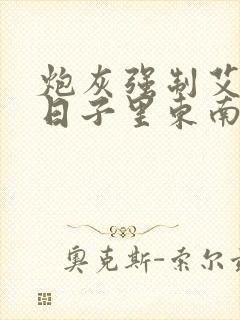 炮灰强制艾
日子里东南
奥克斯-索尔